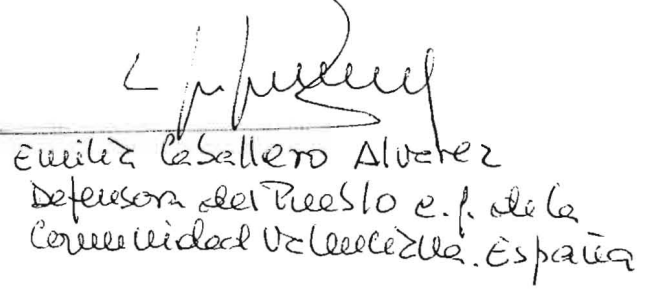 Emilia Caballero Alvarez
Defensora del Pueblo e.f. de la
Comunidad Valenciana. España